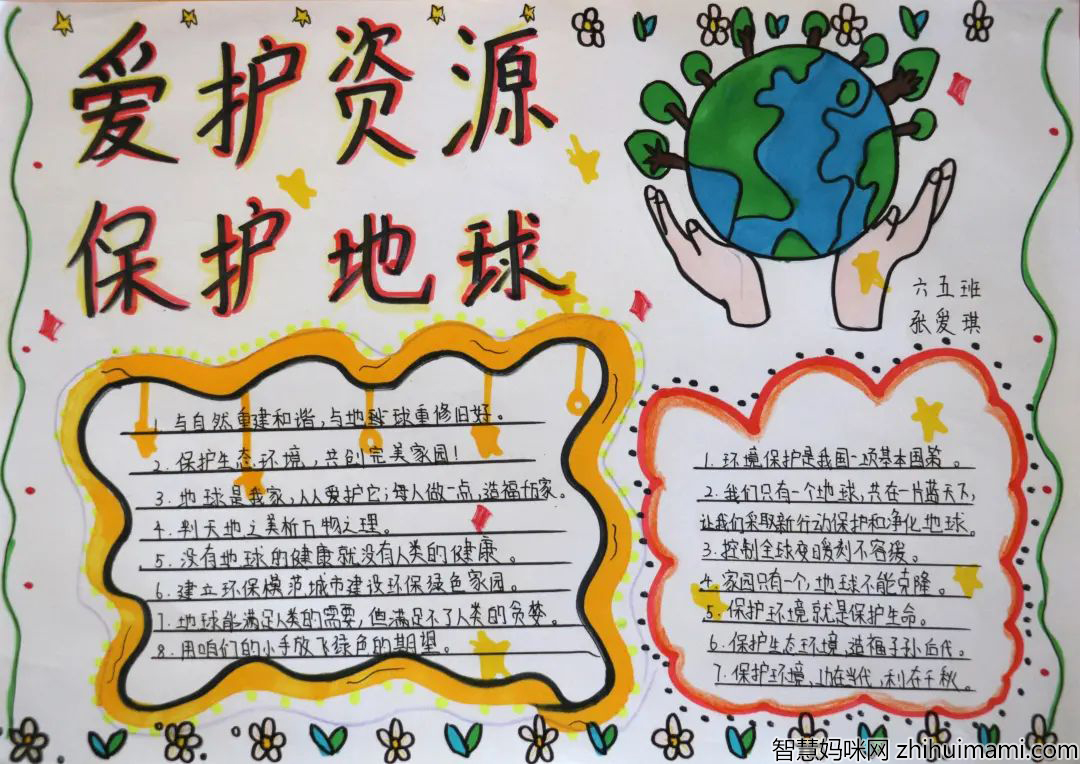 爱护资源
保护地球
六五班
张爱琪
1. 与自然重建和谐，与地球球重修旧好。
2. 保护生态环境，共创完美家园！
3. 地球是我家，人人爱护它；每人做一点，造福千万家。
4. 判天地之美析万物之理。
5. 没有地球的健康就没有人类的健康。
6. 建立环保模范城市建设环保绿色家园。
7. 地球能满足人类的需要，但满足不了人类的贪婪。
8. 用咱们的小手放飞绿色的期望。
1. 环境保护是我国一项基本国策。
2. 我们只有一个地球，共在一片蓝天下，
让我们采取新行动保护和净化地球。
3. 控制全球变暖刻不容缓。
4. 家园只有一个，地球不能克隆。
5. 保护环境就是保护生命。
6. 保护生态环境，造福子孙后代。
7. 保护环境，功在当代，利在千秋。
智慧妈咪网 zhihuimami.com